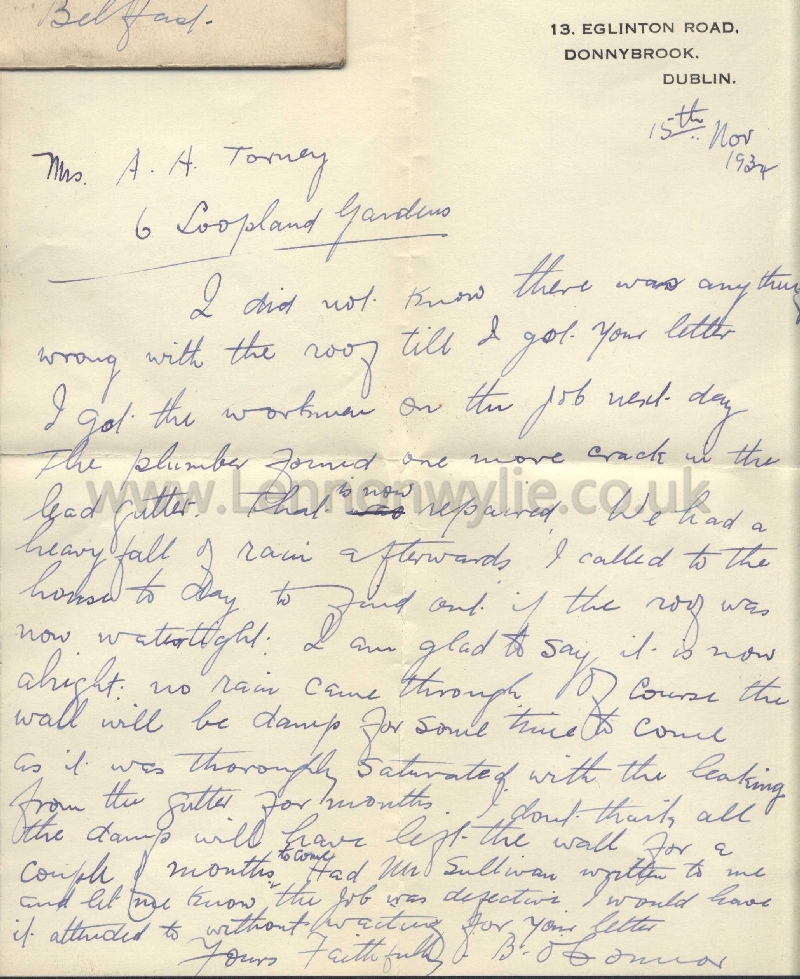 Belfast.
13. EGLINTON ROAD,
DONNYBROOK.
DUBLIN.
15th Nov
1934
Mrs. A. H. Torney
6 Loopland Gardens
I did not know there was anything
wrong with the roof till I got your letter
I got the workmen on the job next day
The plumber found one more crack in the
lead gutter that is now repaired. We had a
heavy fall of rain afterwards I called to the
house to day to find out if the roof was
now watertight. I am glad to say it is now
alright. no rain came through Of course the
wall will be damp for some time to come
as it was thoroughly saturated with the leaking
from the gutter for months I dont think all
the damp will have left the wall for a
couple of months to come Had Mr Sullivan written to me
and let me know the job was defective I would have
it attended to without waiting for your letter
Yours Faithfully B. O'Connor
www.Lennonwylie.co.uk